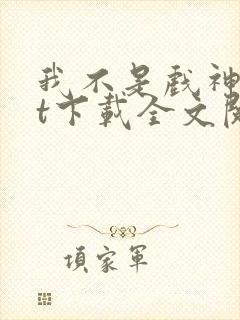 我不是戲神
t下載全文閱
項家軍